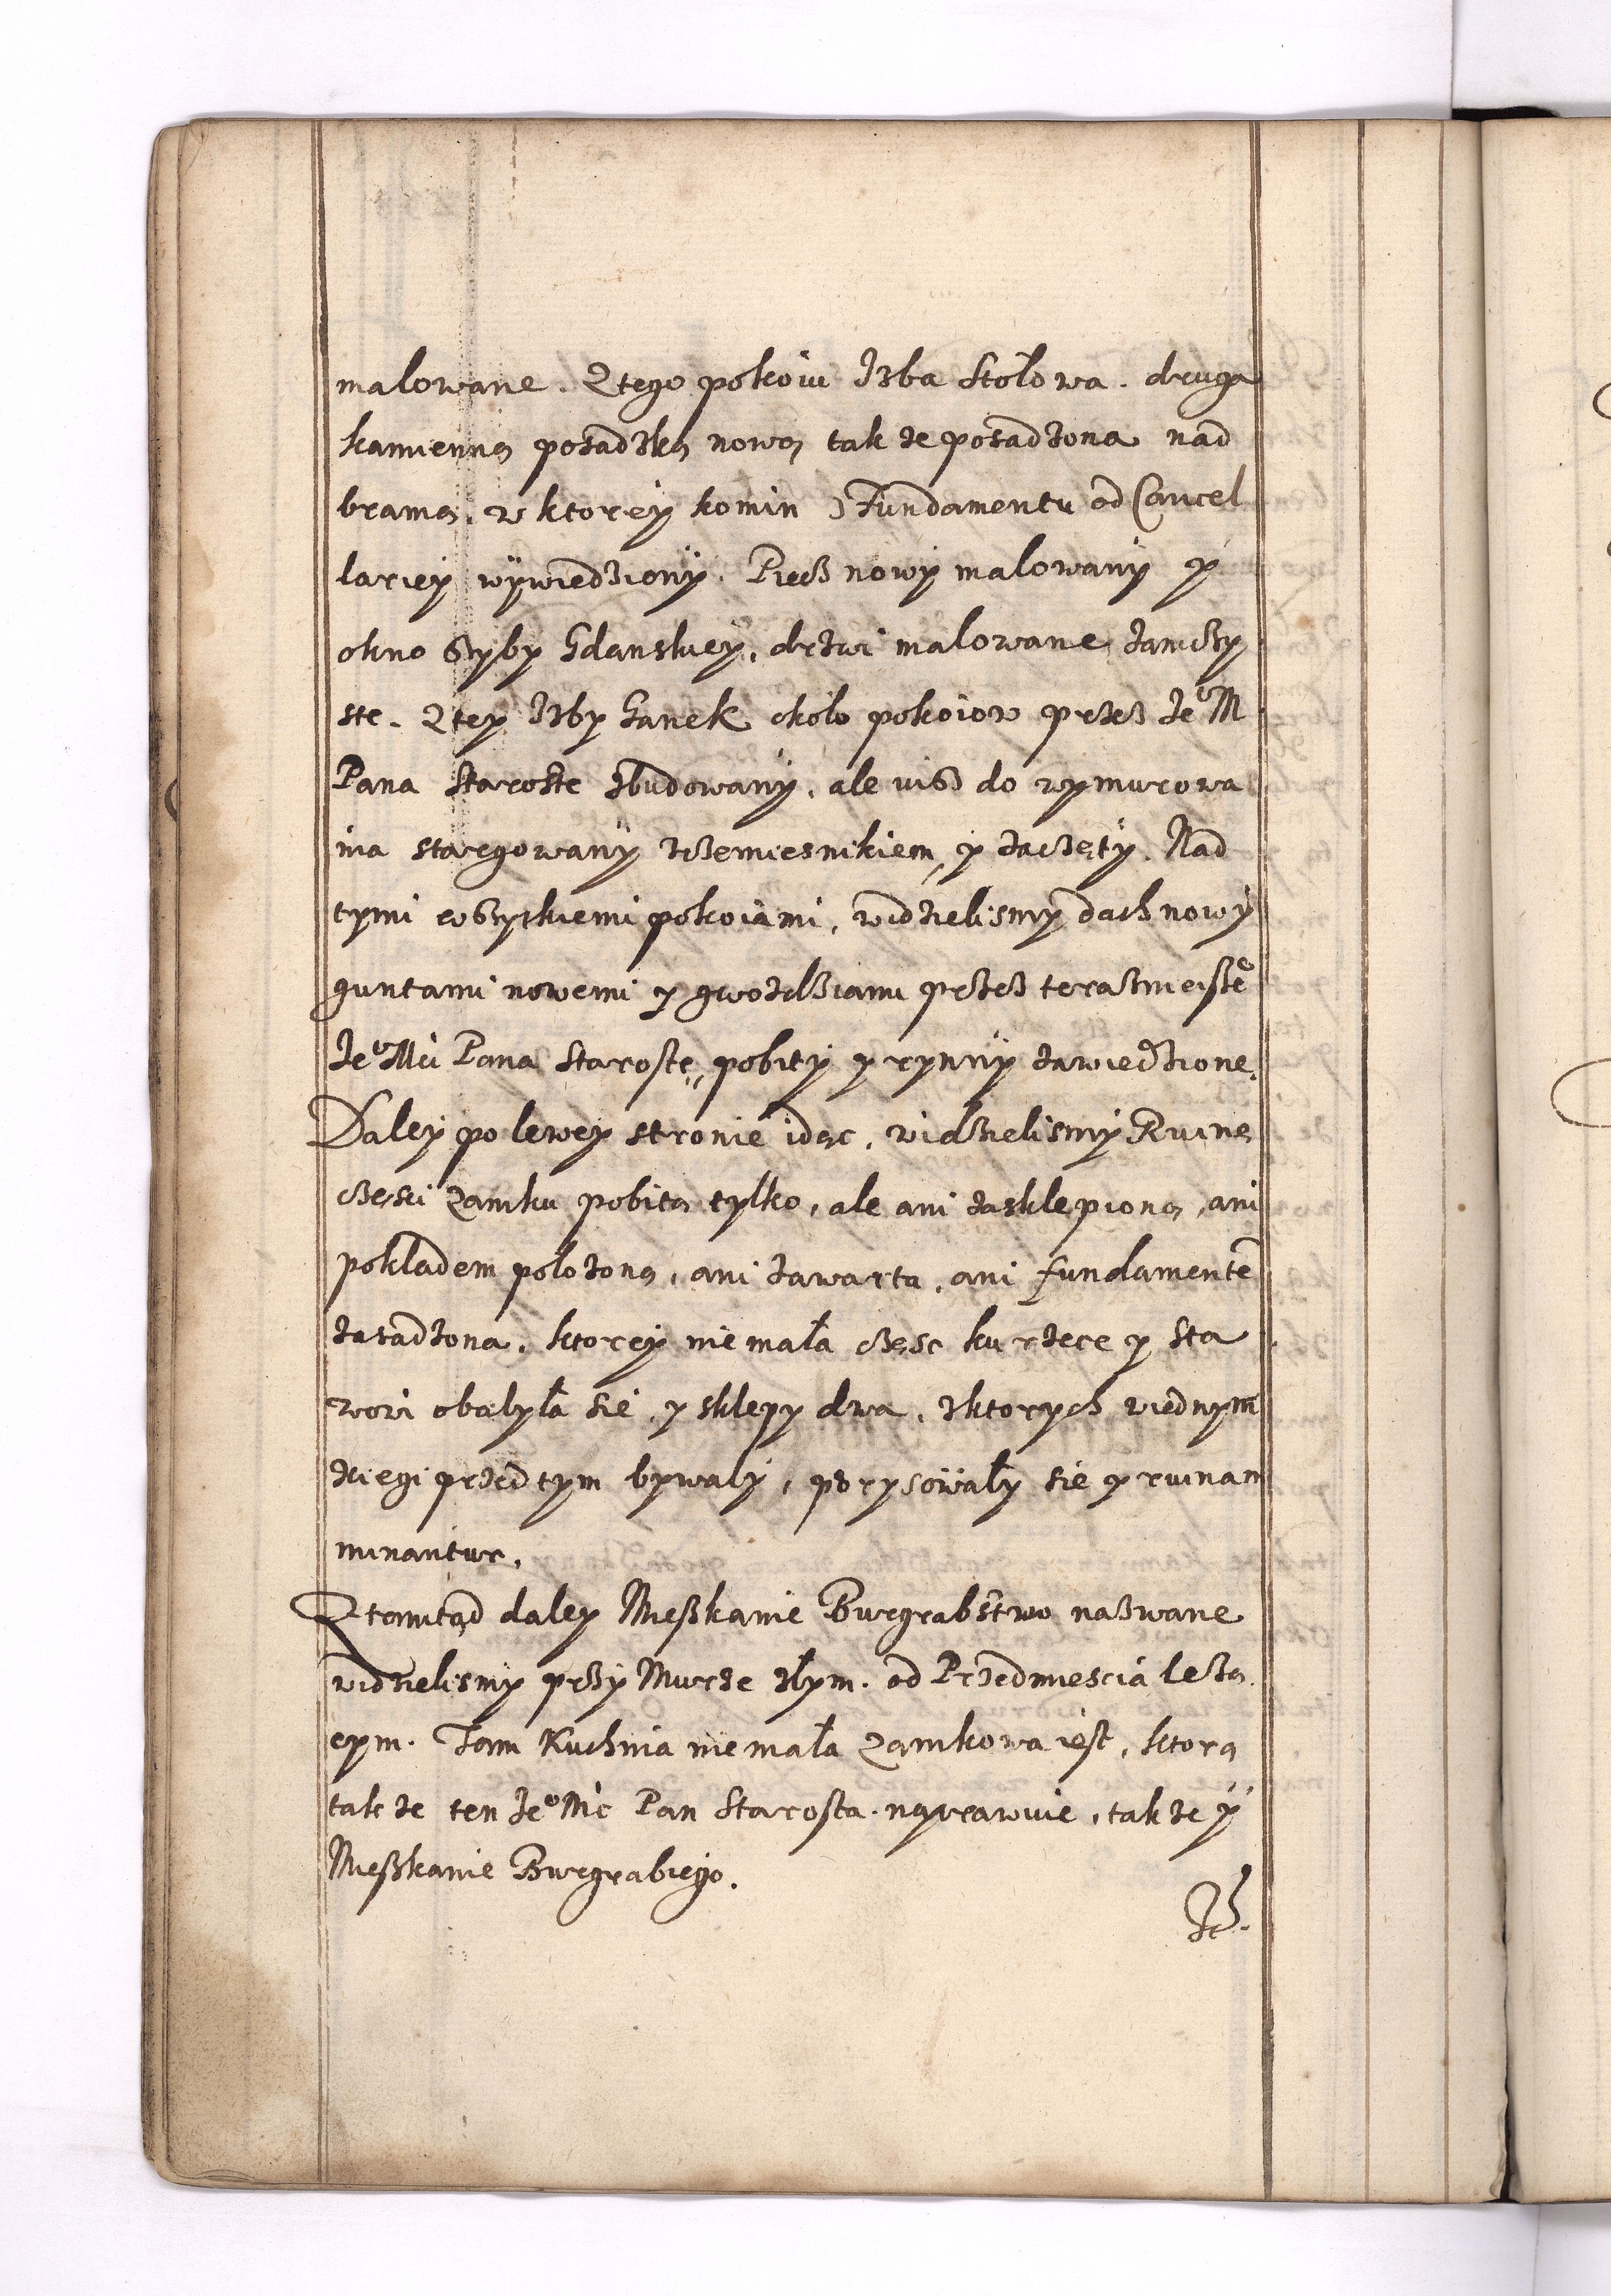 malowane. Z tego pokoiu Izba Stołowa. druga
kamienną posadzką nową tak ze posadzona nad
bramą, w ktorey komin z Fundamentu od Cancel
lariey wywiedziony. Piecz nowy malowany y
okno szyby Gdanskiey, drzwi malowane zamczy
ste. Z tey Izby Ganek około pokoiow przez Jeo M
Pana Staroste zbudowany, ale iusz do wymurowa
nia stargowany z rzemiesnikiem, y zaczęty. Nad
tymi wszytkiemi pokoiami, widzielismy dach nowy
guntami nowemi y gwozdziami przez terasnieyszeo
Jeo Mci Pana Starostę, pobity y rynny zawiedzione.
Daley po lewey stronie idąc, widzielismy Ruinę
części Zamku pobitą tylko, ale ani zasklepioną, ani
pokladem położoną, ani zawarta, ani fundamentē
zasadzona, ktorey nie mała częsc ku rzece y sta
wowi obalyła sie, y sklepy dwa, z ktorych w iednym
xiegi przed tym bywały, porysowały sie y ruinam
minantur.
Z tamtąd daley Mieszkanie Burgrabstwo nazwane
widzielismy przy Murze złym. od Przedmiescia leżą
cym. Tam Kuchnia nie mała Zamkowa iest, ktorą
tak ze ten Jeo Mc Pan Starosta naprawuie, tak ze y
Mieszkanie Burgrabiego.